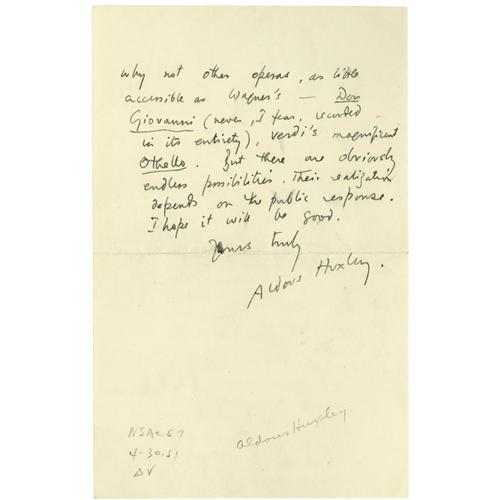 why not other operas, as little
accessible as Wagner's — Don
Giovanni (never, I fear, recorded
in its entirety), Verdi's magnificent
Othello. But there are obviously
endless possibilities. Their realization
depends on the public response.
I hope it will be good.
Yours truly
Aldous Huxley.
aldous Huxley
NSAe57
4-30.51